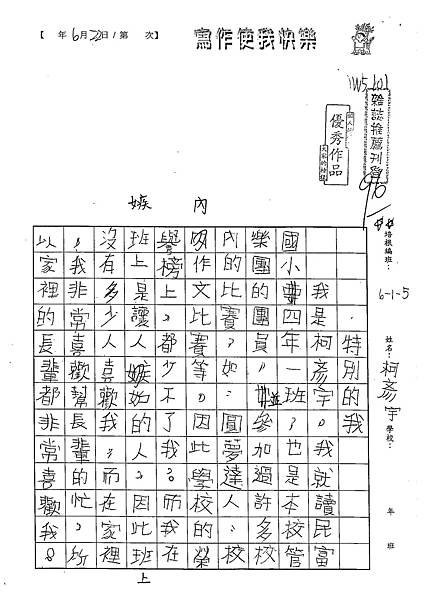 【 年6月20日/第 次】
寫作使我快樂
1W5101
雜誌推薦刊登
優秀作品
90
培根編班:6-1-5
姓名:柯彥宇
學校:
年 班
特別的我
我是柯彥宇。我就讀民富
國小四年一班,也是本校管
樂團的團員,並參加過許多校
內的比賽,如:圓夢達人、校
內作文比賽等。因此學校的榮
譽榜上都少不了我。而我在
班上是讓人嫉妒的人,因此班上
沒有多少人喜歡我,而在家裡
,我非常喜歡幫長輩忙,所
以家裡的長輩都非常喜歡我。